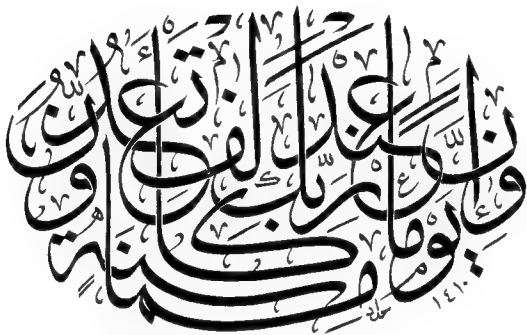 وَإِنَّ يَوْمًا عِندَ رَبِّكَ كَأَلْفِ سَنَةٍ مِّمَّا تَعُدُّونَ
١٤١٠